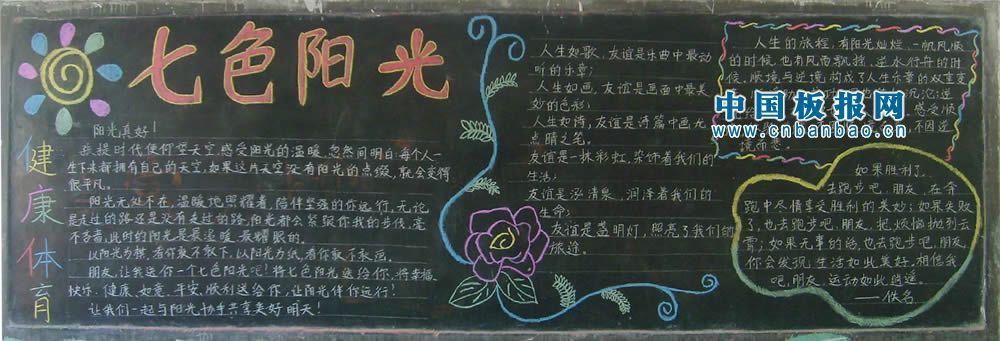 七色阳光
健康体育
阳光真好！
孩提时代便仰望天空，感受阳光的温暖，忽然间明白：每个人一
生下来都拥有自己的天空，如果这片天空没有阳光的点缀，就会变得
很平凡。
阳光无处不在，温暖地照耀着，陪伴坚强的你远行，无论
是走过的路还是没有走过的路，阳光都会紧跟你我的步伐，毫
不吝啬，此时的阳光是最温暖、最耀眼的。
以阳光为纸，看你
朋友，让我送你一个七色阳光吧！将七色阳光送给你，将幸福、
快乐、健康、如意、平安、顺利送给你，让阳光伴你远行！
让我们一起与阳光协手共享美好明天！
人生如歌，友谊是乐曲中最动
听的乐章；
人生如画，友谊是画面中最美
妙的色彩；
人生如诗，友谊是诗篇中画龙
点睛之笔。
友谊是一抹彩虹，染饰着我们的
生活；
友谊是泓清泉，润泽着我们的
生命；
友谊是盏明灯，照亮了我们的
旅途。
人生的旅程，有阳光灿烂、一帆风顺
的时候，也有风雨飘摇、逆水行舟的时
候，顺境与逆境构成了人生乐章的双重奏
感受顺
不因逆
境而悲。
中国板报网
www.cnbanbao.cn
如果胜利了，
去跑步吧，朋友，在奔
跑中尽情享受胜利的美妙；如果失败
了，也去跑步吧，朋友，把烦恼抛到云
霄；如果无事的话，也去跑步吧，朋友，
你会发现：生活如此美好，相信我
吧，朋友，运动如此逍遥。
——佚名